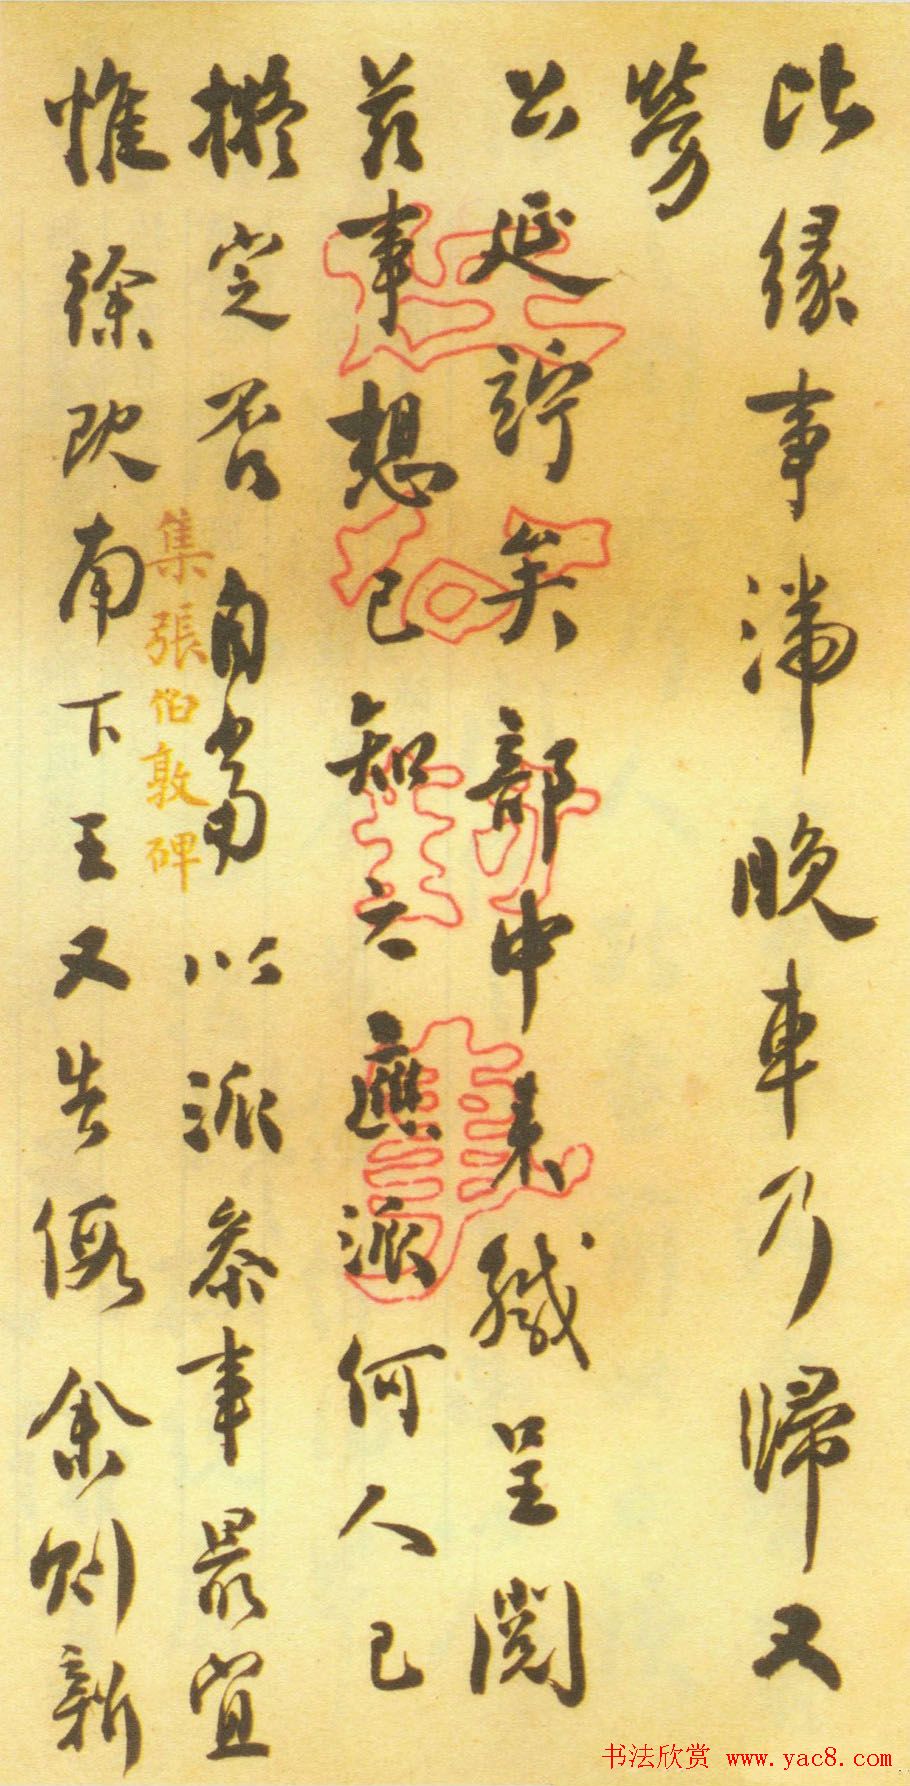 比缘事滞晚車乃歸又
勞
公延竚矣部中来緘呈閱
若事想已知之應派何人已
擬定否自當以派参事最宜
惟徐既南下王又告假余則新
集張伯敦碑
书法欣赏 www.yac8.com